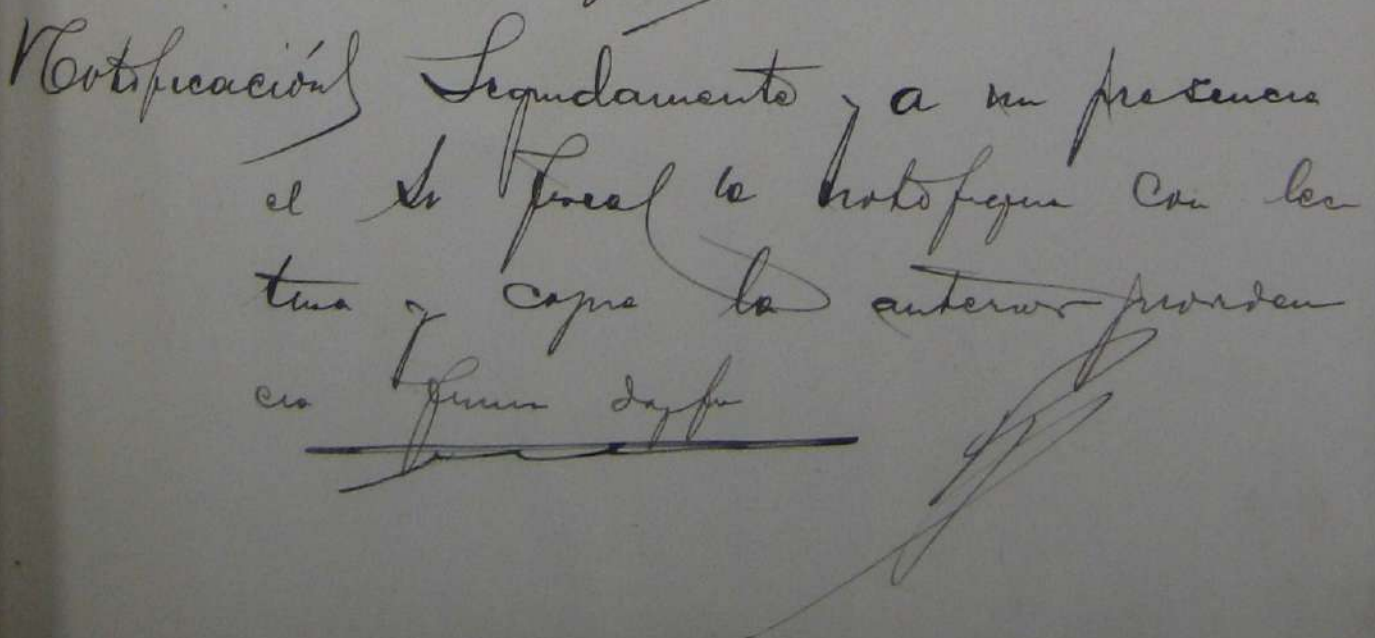 Notificación} Seguidamente, y a mi presencia
el Sr Fiscal le notifique con lec
tura y copia la anterior providen
cia firma doy fe